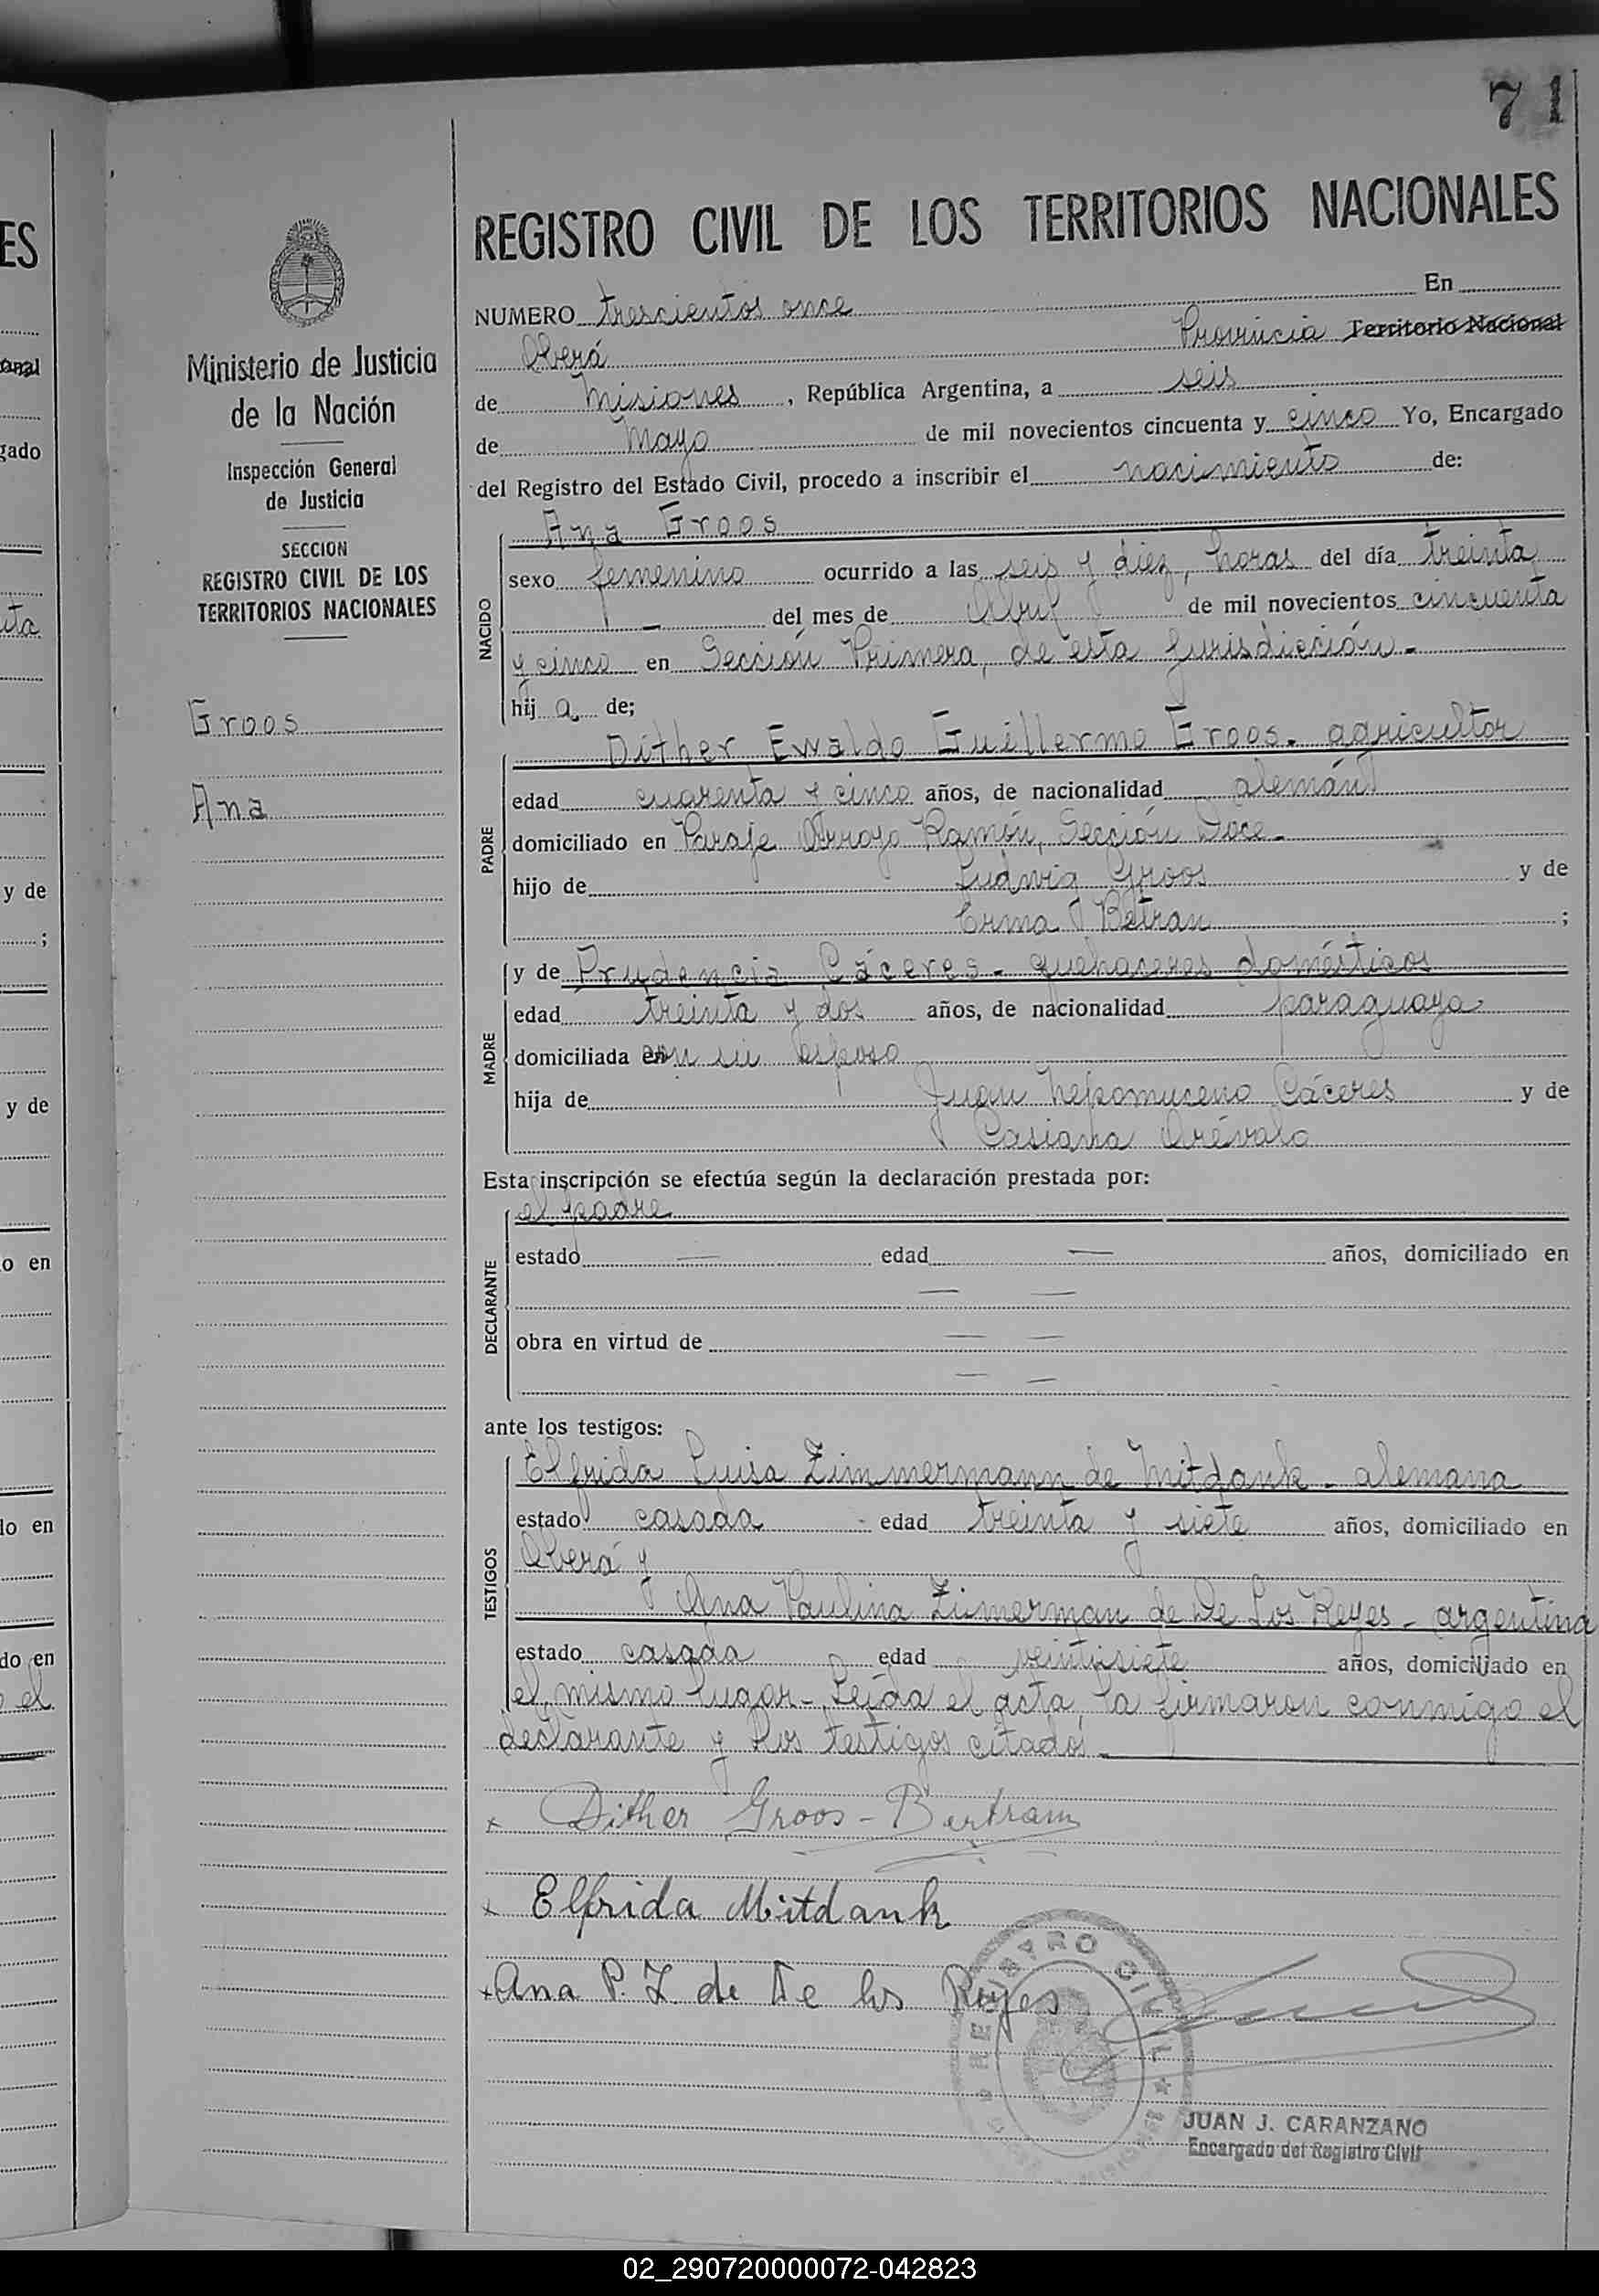 71
REGISTRO CIVIL DE LOS TERRITORIOS NACIONALES
NUMERO trescientos once En
Oberá Provincia Territorio Nacional
de Misiones, República Argentina, a seis
de Mayo de mil novecientos cincuenta y cinco Yo, Encargado
del Registro del Estado Civil, procedo a inscribir el nacimiento de:
Ministerio de Justicia
de la Nación
Inspección General
de Justicia
SECCION
REGISTRO CIVIL DE LOS
TERRITORIOS NACIONALES
Groos
Ana
NACIDO
Ana Groos
sexo femenino ocurrido a las seis y diez, horas del día treinta
— del mes de Abril de mil novecientos cincuenta
y cinco en Sección Primera, de esta jurisdicción.-
hij a de;
PADRE
Dither Ewaldo Guillermo Groos. agricultor
edad cuarenta y cinco años, de nacionalidad alemán
domiciliado en Paraje Arroyo Ramón, Sección Doce-
hijo de Ludwig Groos y de
Erma Betran ;
MADRE
y de Prudencia Cáceres - quehaceres domésticos
edad treinta y dos años, de nacionalidad paraguaya
domiciliada en con su esposo
hija de Juan Nepomuceno Cáceres y de
Casiana Arévalo
Esta inscripción se efectúa según la declaración prestada por:
DECLARANTE
el padre
estado — edad — años, domiciliado en
— —
obra en virtud de — —
— —
ante los testigos:
TESTIGOS
Elfrida Luisa Zimmermann de Mitdank - alemana
estado casada - edad treinta y siete años, domiciliado en
Oberá y
Ana Paulina Zimerman de De Los Reyes - argentina
estado casada edad veintisiete años, domiciliado en
el mismo lugar- Leída el acta, la firmaron conmigo el
declarante y los testigos citados.-
x Dither Groos - Bertram
x Elfrida Mitdank
x Ana P. Z. de De los Reyes
REGISTRO CIVIL
JUAN J. CARANZANO
Encargado del Registro Civil
02_290720000072-042823